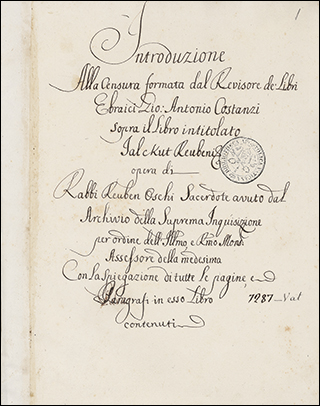 1
Introduzione
Alla Censura formata dal Revisore de Libri
Ebraici Gio: Antonio Costanzi
sopra il Libro intitolato
Ialckut Reubeni
opera di
Rabbi Reuben Oschi Sacerdote avuto dal
Archivio della Suprema Inquisizione
per ordine dell' Illmo e Rmo Monsr
Assessore della medesima
Con la spiegazione di tutte le pagine, e
Paragrafi in esso Libro
contenuti